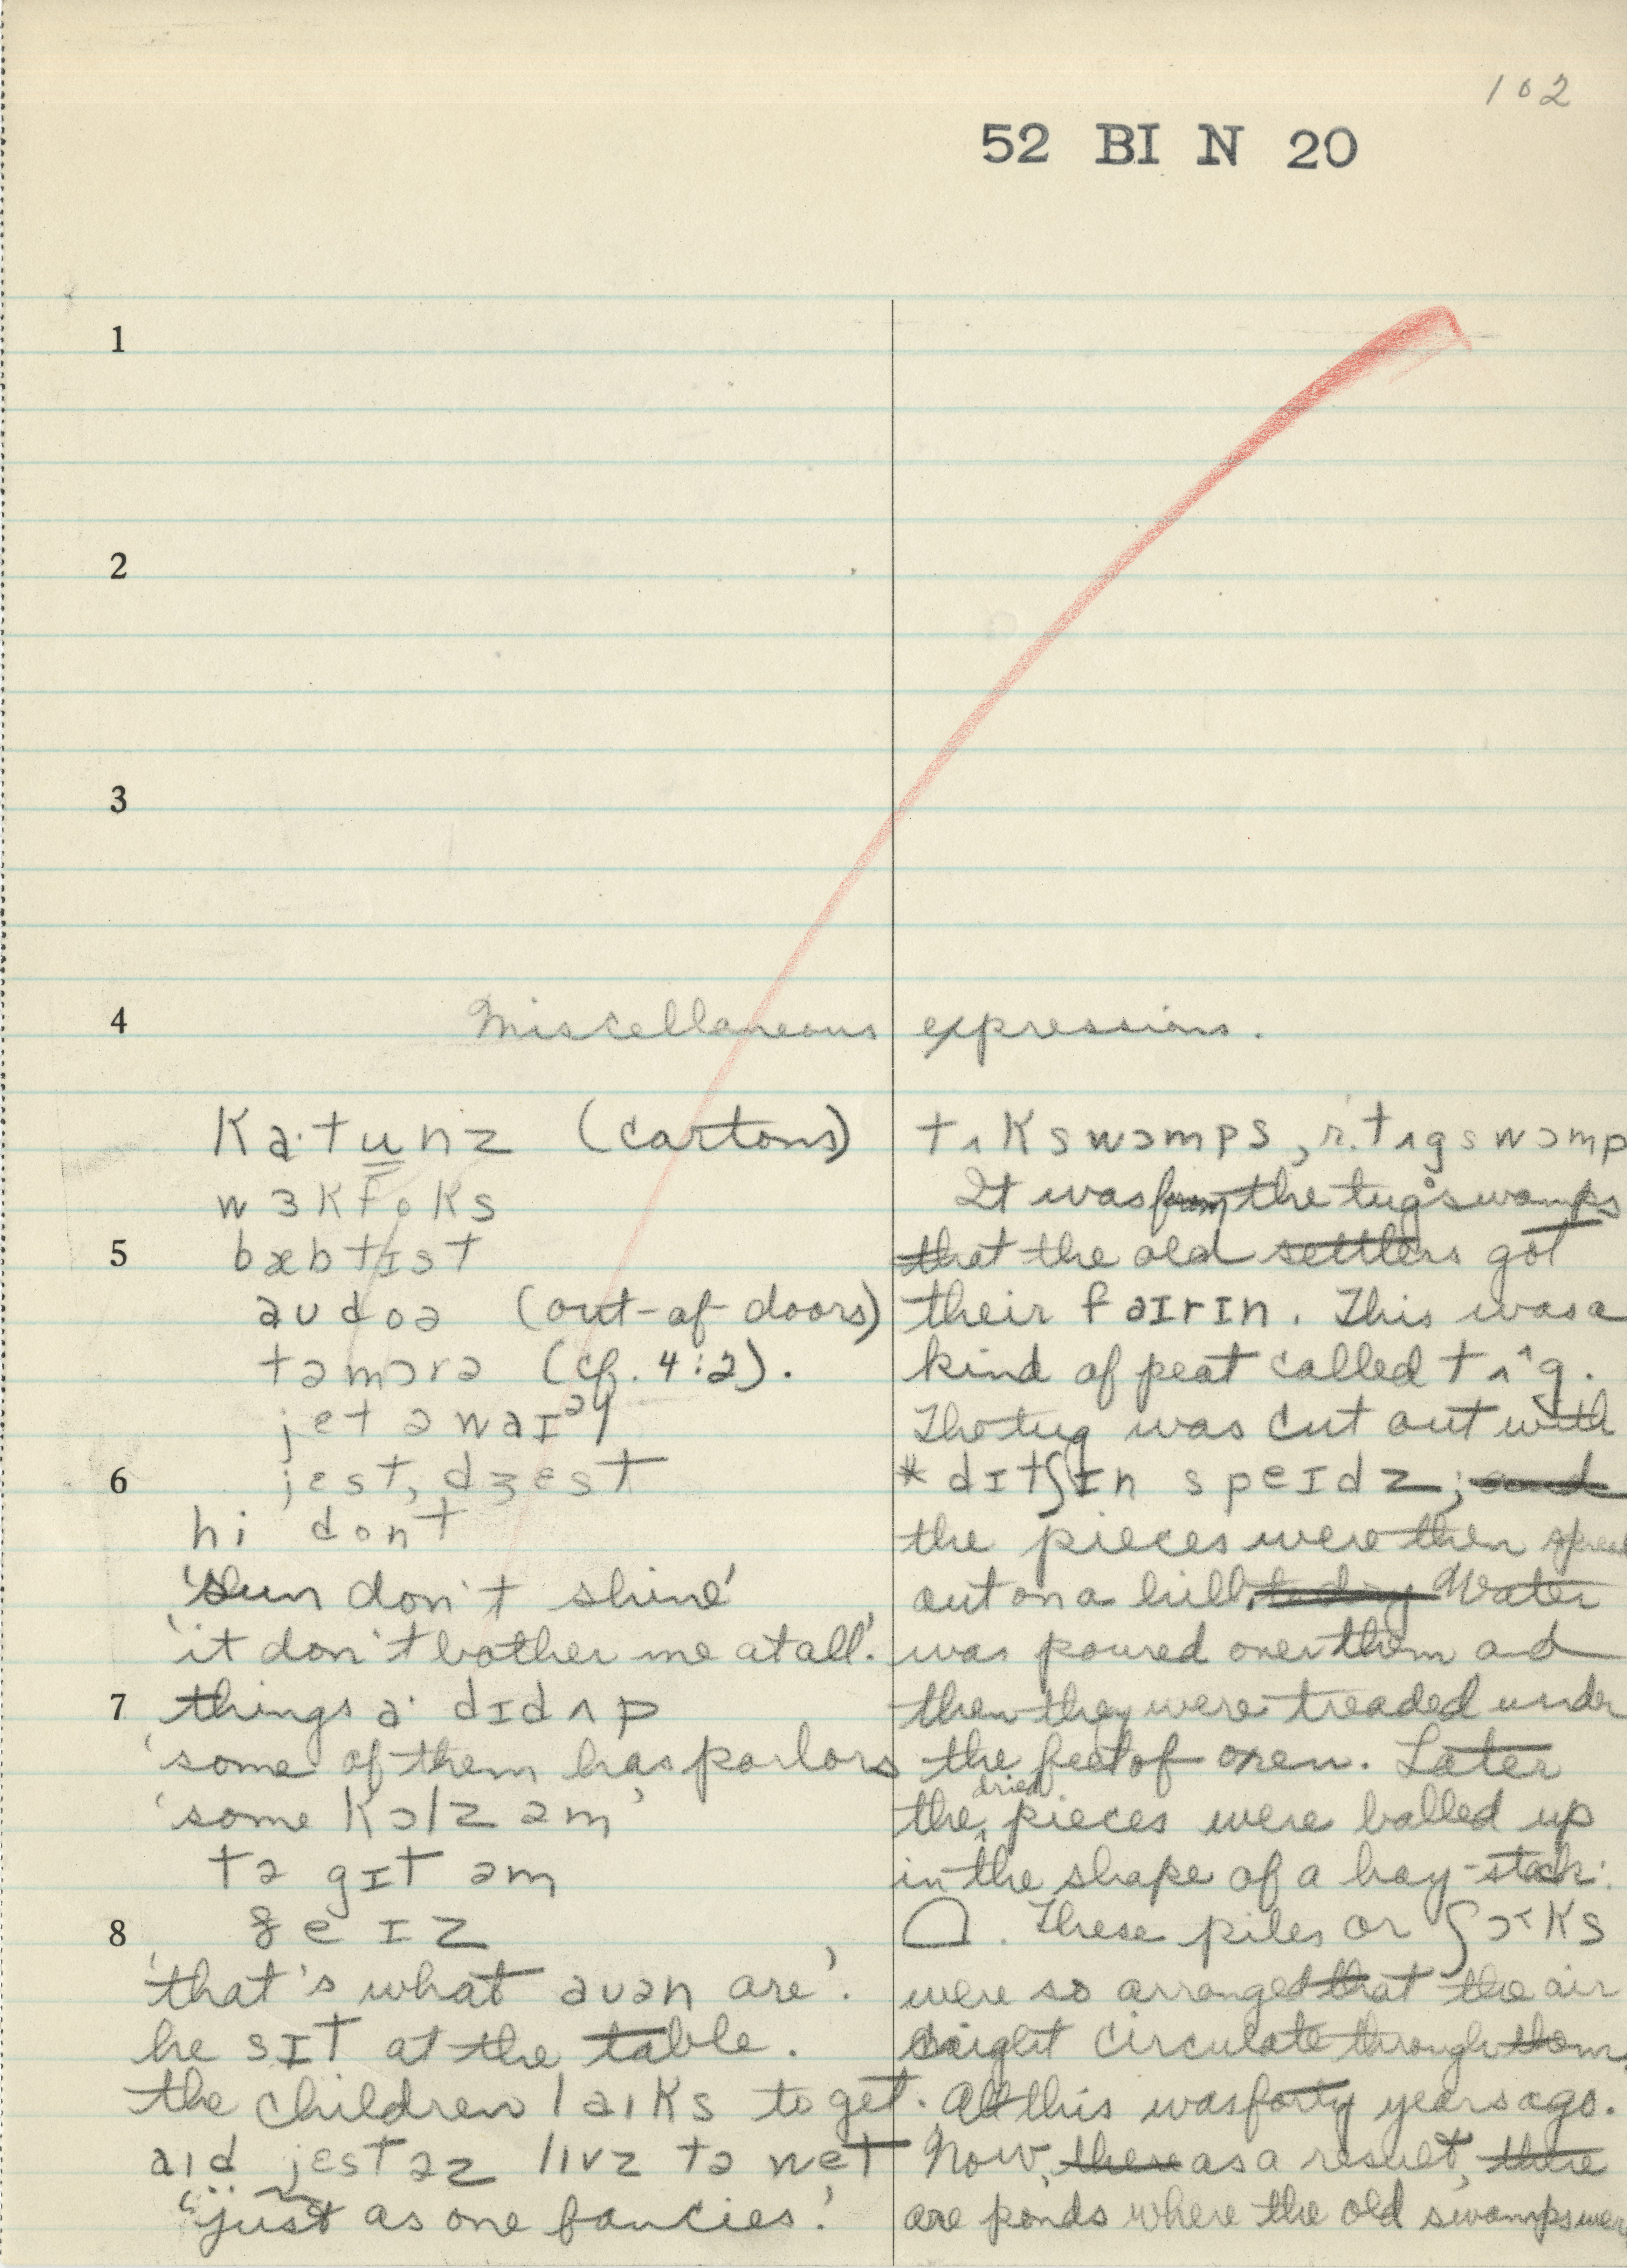 102
52 BI N 20
1
2
3
4
Miscellaneous expressions.
ka·tunz (cartons)
wɜkfoks
5 bæbtɪst
aʊdoə (out-of doors)
təmɔrə (cf. 4:2).
jet ə waɪəɹ
6 jɛst, dʒɛst
hi dont
'Sun don't shine'
'it don't bother me at all'.
7 things a· dɪdʌp
'some of them has parlors
'some kɔlz əm'
tə gɪt əm
8 ʒeɪz
'that's what aʊən are'.
he sɪt at the table.
the children laɪks to get.
aɪd jɛst əz lɪvz tə wet
"just as one fancies.'
tʌkswɔmps, r. tʌgswɔmp
It was from the tug swamps
that the old settlers got
their faɪrɪn. This was a
kind of peat called tʌ^g.
The tug was cut out with
* dɪtʃɪn speɪdz; and
the pieces were then spread
out on a hill, to dry Water
was poured over them ad
then they were treaded under
the feet of oxen. Later
the dried pieces were balled up
in the shape of a hay-stack:
. These piles or ʃɔ˂ks
were so arranged that the air
might circulate through them.
All this was forty years ago.
Now, there as a result, there
are ponds where the old swamps were